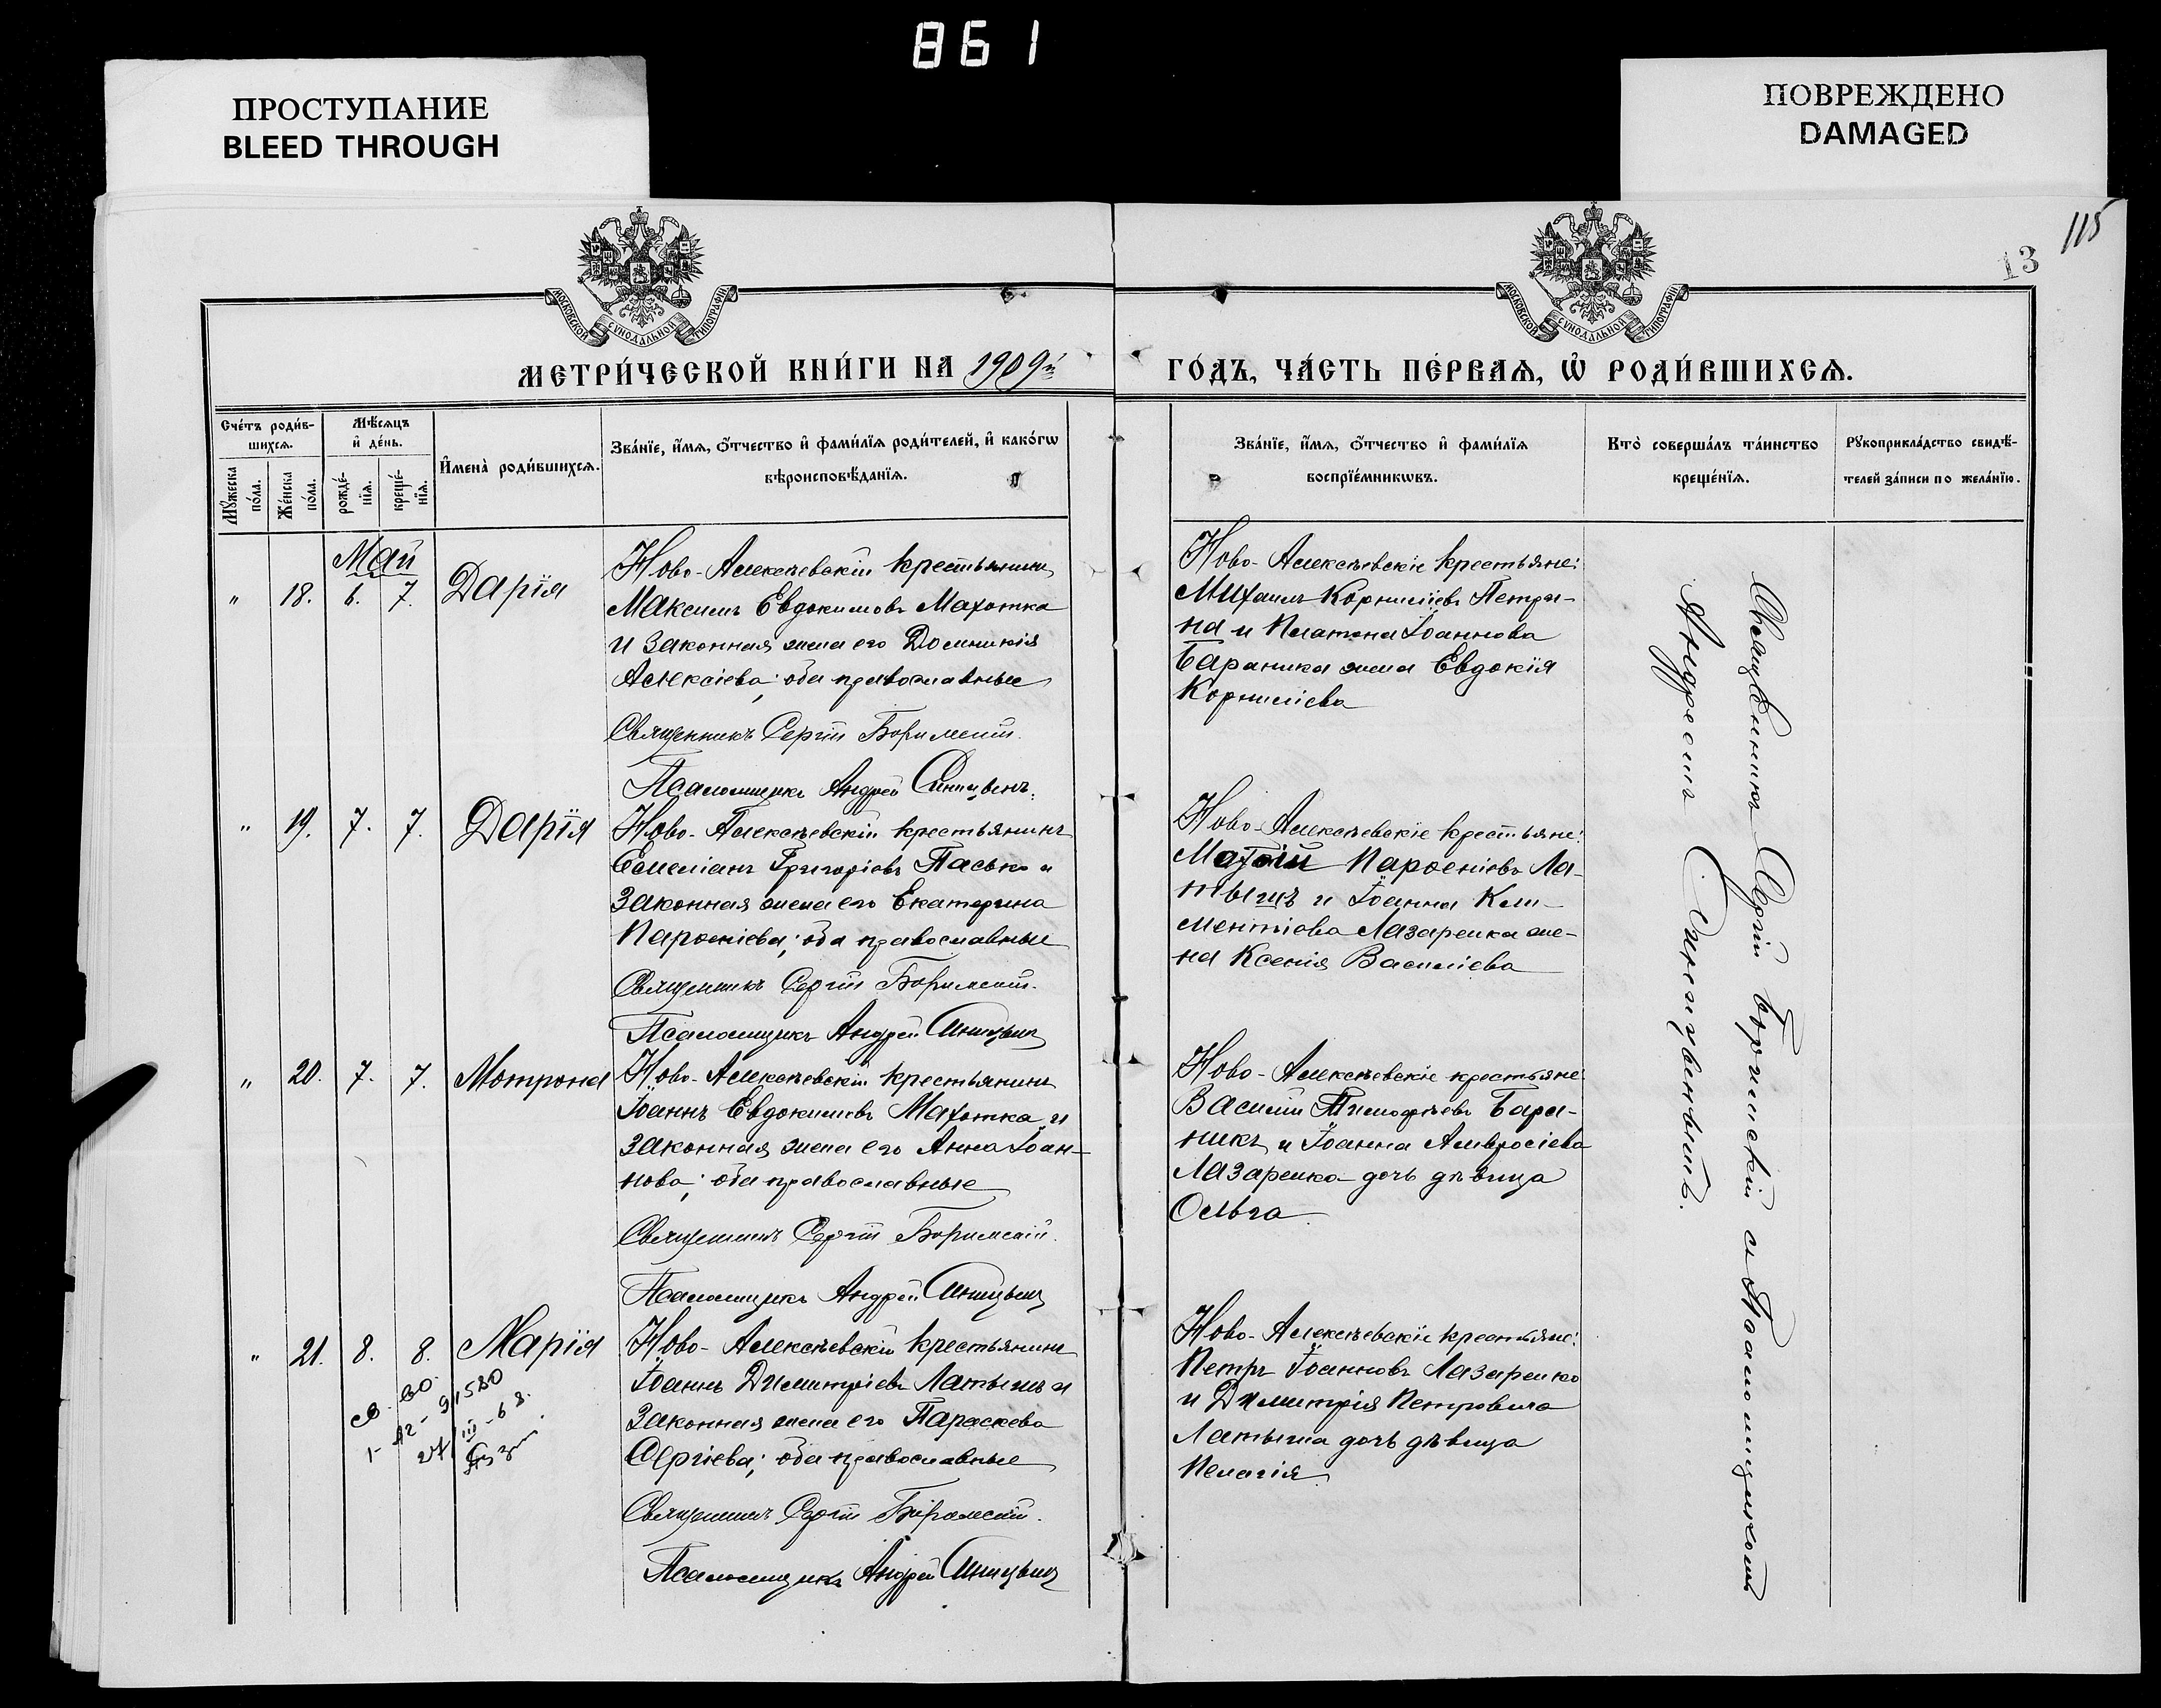 861
ПРОСТУПАНИЕ
BLEED THROUGH
ПОВРЕЖДЕНО
DAMAGED
115
13
МОСКОВСКОЙ СѴНОДАЛЬНОЙ ТИПОГРАФІИ
МОСКОВСКОЙ СѴНОДАЛЬНОЙ ТИПОГРАФІИ
МЕТРИ́ЧЕСКОЙ КНИ́ГИ НА 1909й
ГО́ДЪ, ЧА́СТЬ ПЕ́РВАѦ, Ѡ҆ РОДИ́ВШИХСѦ.
Сче́тъ роди́в-
шихсѧ.
Мѣ́сѧцъ
и҆ де́нь.
Мꙋ́жеска
по́ла.
Же́нска
по́ла.
рожде́-
нїѧ.
креще́-
нїѧ.
И҆мена̀ роди́вшихсѧ.
Зва́нїе, и҆́мѧ, ѻ҆́тчество и҆ фами́лїѧ роди́телей, и҆ како́гѡ
вѣроисповѣ́данїѧ.
Зва́нїе, и҆́мѧ, ѻ҆́тчество и҆ фами́лїѧ
воспрїе́мникѡвъ.
Кто̀ соверша́лъ та́инство
креще́нїѧ.
Рꙋкоприкла́дство свидѣ́-
телей за́писи по жела́нїю.
Май
" 18. 6. 7. Дарія
Ново-Алексѣевскій крестьянинъ
Максимъ Евдокимовъ Махотка
и законная жена его Домникія
Алексіева; оба православные
Священникъ Сергій Боримскій.
Псаломщикъ Андрей Синицынъ.
Ново-Алексѣевскіе крестьяне:
Михаилъ Корниліевъ Петри-
на и Платона Іоаннова
Бараника жена Евдокія
Корниліева
" 19. 7. 7. Дарія
Ново-Алексѣевскій крестьянинъ
Емеліанъ Григоріевъ Пасько и
законная жена его Екатерина
Парѳеніева; оба православные
Священникъ Сергій Боримскій.
Псаломщикъ Андрей Синицынъ
Ново-Алексѣевскіе крестьяне:
Матѳій Парѳеніевъ Ла-
тышъ и Іоанна Кли-
ментіова Лазаренка же-
на Ксенія Василіева
" 20. 7. 7. Мотрона
Ново-Алексѣевскій крестьянинъ
Іоаннъ Евдокимовъ Махотка и
законная жена его Анна Іоан-
нова; оба православные
Священникъ Сергій Боримскій.
Псаломщикъ Андрей Синицынъ
Ново-Алексѣевскіе крестьяне
Василій Тимоѳѣевъ Бара-
никъ и Іоанна Амвросіева
Лазаренко дочь дѣвица
Ольга
" 21. 8. 8. Марія
Ново-Алексѣевскій крестьянинъ
Іоаннъ Димитріевъ Латышъ и
законная жена его Параскева
Сергіева; оба православные
Священникъ Сергій Боримскій.
Псаломщикъ Андрей Синицынъ
Ново-Алексѣевскіе крестьяне:
Петръ Іоанновъ Лазаренко
и Димитрія Петровича
Латыша дочь дѣвица
Пелагія
Священникъ Сергій Боримскій и Псаломщикъ
Андрей Синицынъ.